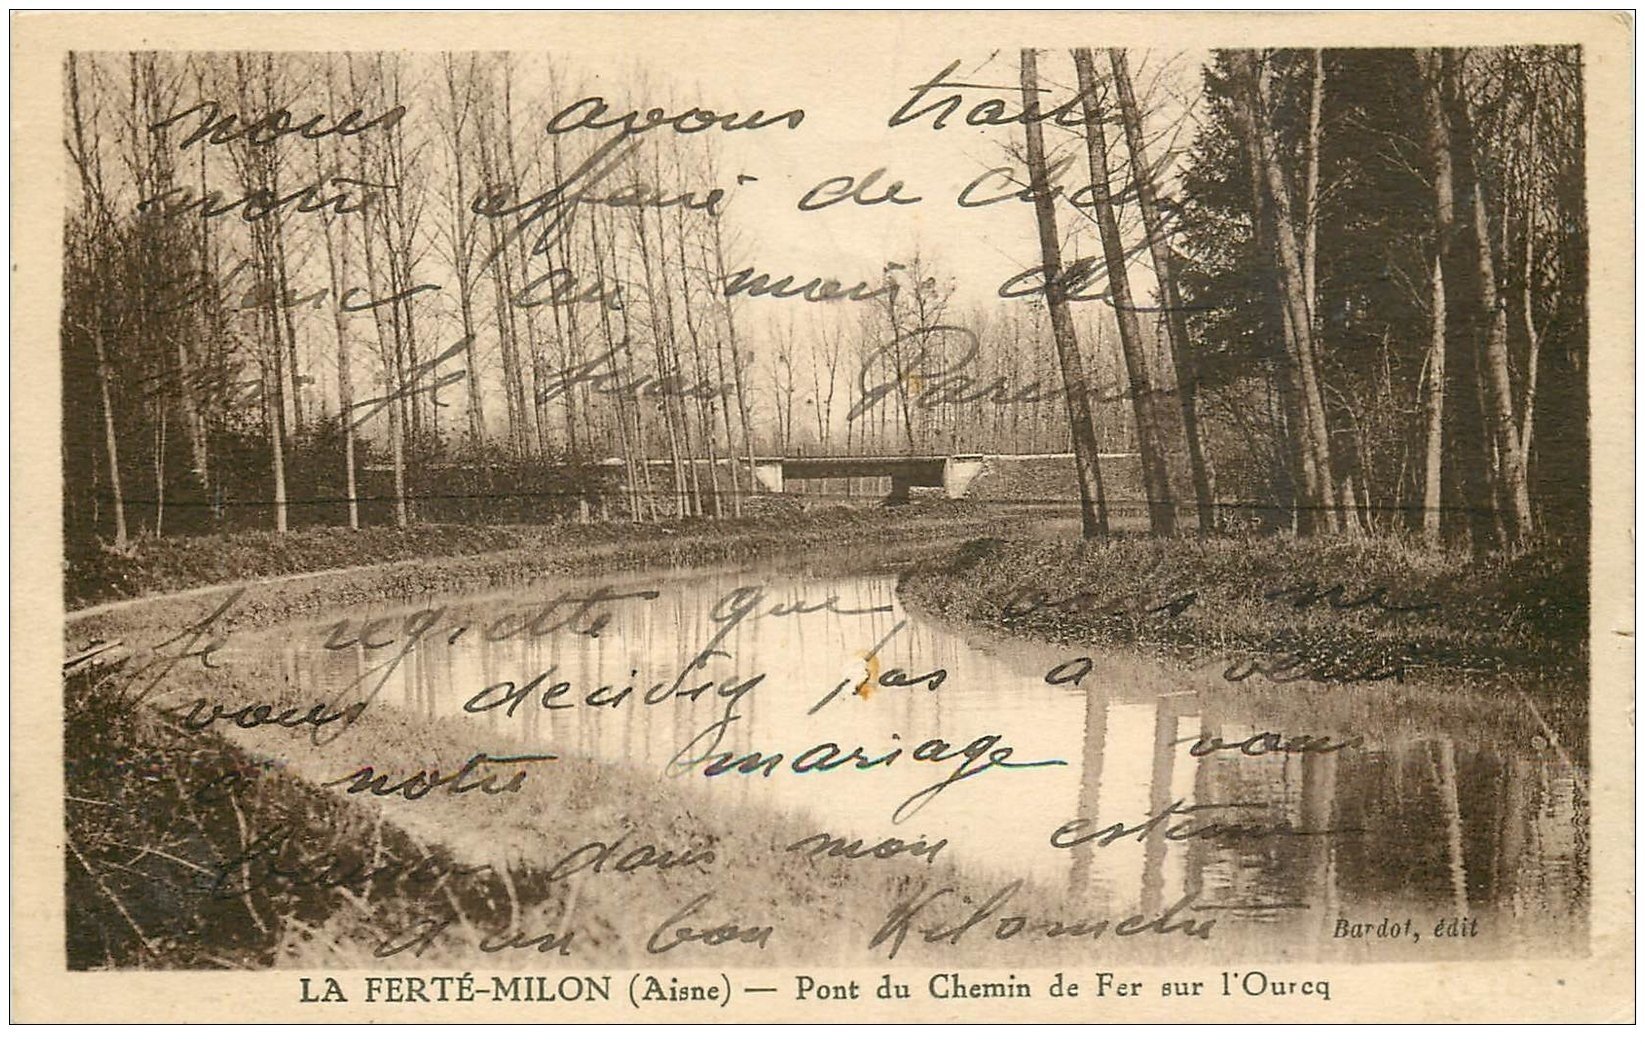 nous avons traité
notre affaire de Clichy
donc au mois de
je serai Parisien
Je regrette que vous ne
vous decidiez pas a venir
a notre mariage vous
dans mon estime
d'un bon Kilometre
Bardot, édit
LA FERTÉ-MILON (Aisne) — Pont du Chemin de Fer sur l'Ourcq